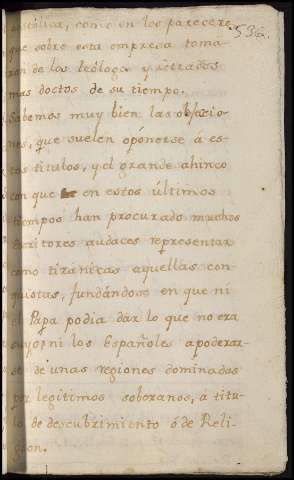 536.
ostólica, como en los parecere
que sobre esta empresa toma-
ron de los teólogos y letrados
mas doctos de su tiempo.
Sabemos muy bien las objecio-
nes, que suelen oponerse á es-
tos titulos, y el grande ahinco
con que en estos últimos
tiempos han procurado muchos
Escritores audaces representar
como tiránicas aquellas con-
quistas, fundándose en que ni
el Papa podia dar lo que no era
suyo, ni los Españoles apoderar-
se de unas regiones dominadas
por legitimos soberanos, á titu-
lo de descubrimiento ó de Reli-
gion.